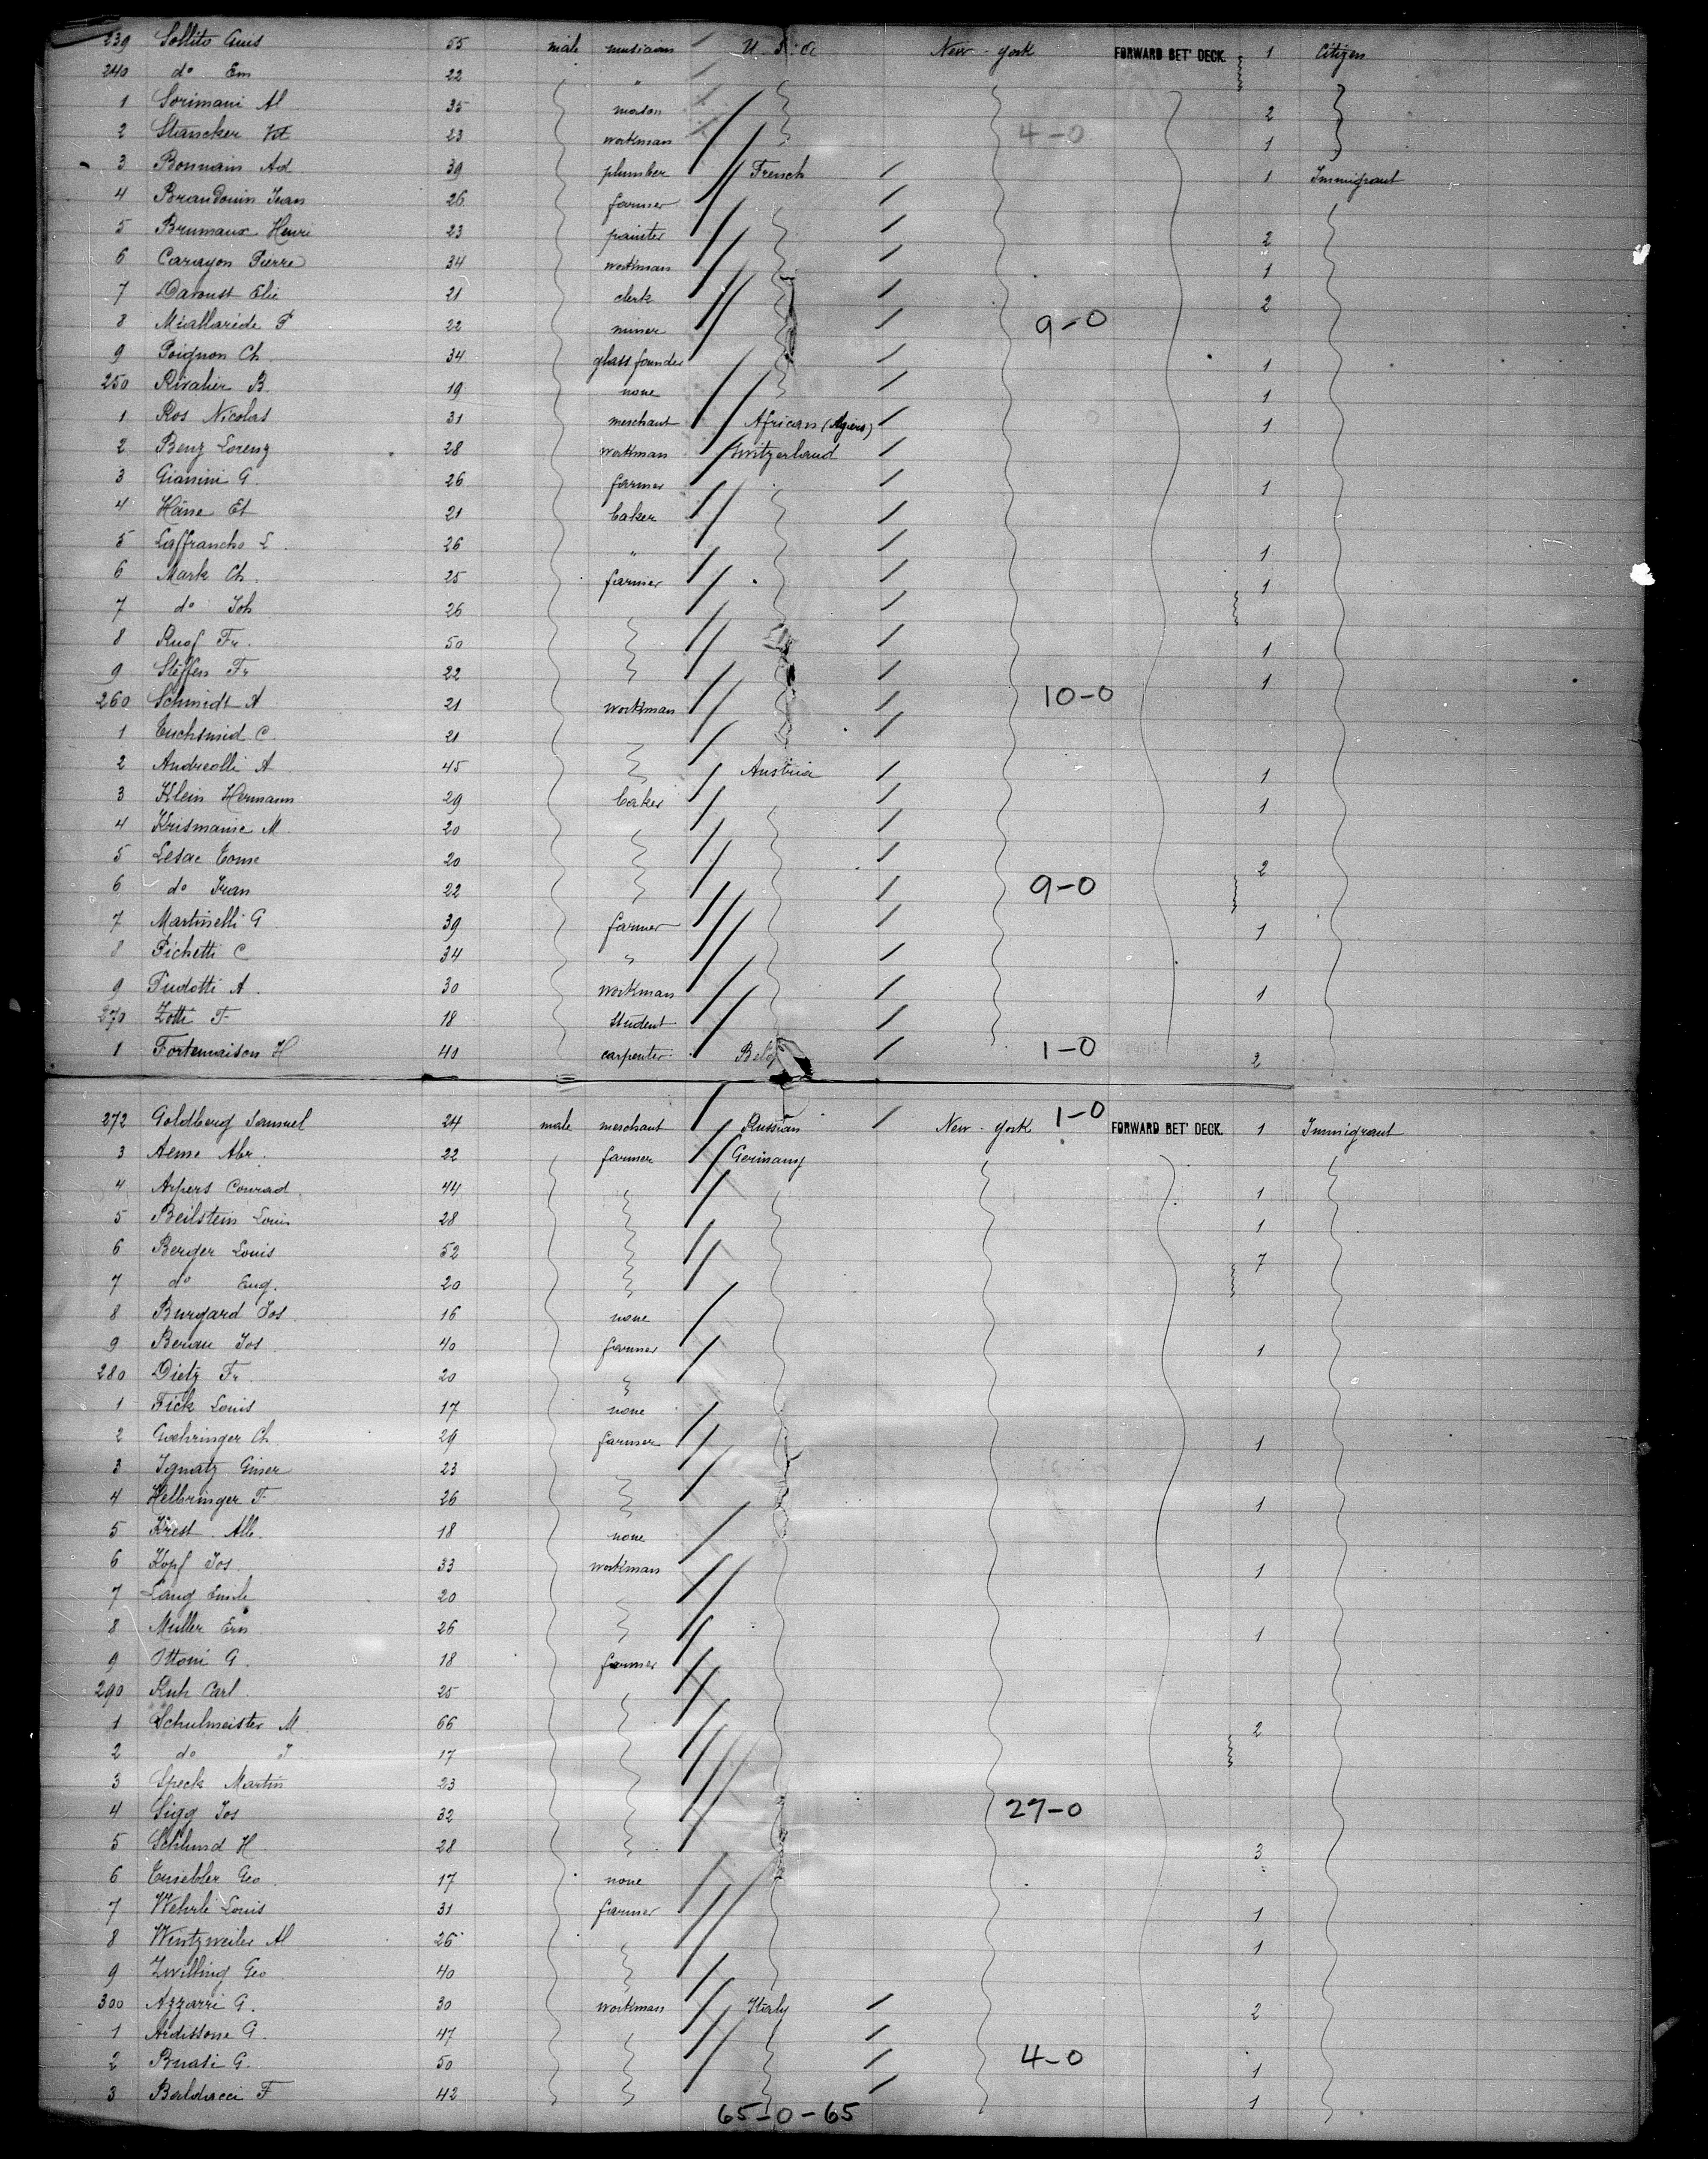 239 Sollito Guis 55 male musician U.S.a New-york FORWARD BET' DECK. 1 Citizen
240 do Em 22 "
1 Sorimani Al 35 mason 2
2 Stancker 23 workman 4-0 1
3 Bonnain Ad 39 plumber French 1 Immigrant
4 Beaudouin Jean 26 farmer
5 Brumaux Henri 23 painter 2
6 Carayon Pierre 34 workman 1
7 Davoust Elie 21 clerk 2
8 Miallaréde P 22 miner 9-0
9 Poignon Ch. 34 glass founder 1
250 Rivalier B. 19 none 1
1 Ros Nicolas 31 merchant African (Algiers) 1
2 Benz Lorenz 28 workman Switzerland
3 Gianini G. 26 farmer 1
4 Häne Et 21 baker
5 Laffrancho L. 26 " 1
6 Mark Ch. 25 farmer 1
7 do Joh 26
8 Ruof Fr. 50 1
9 Steffen Fr 22 1
260 Schmidt A 21 workman 10-0
1 Tuchsmid C. 21
2 Andreolli A 45 Austria 1
3 Klein Hermann 29 baker 1
4 Krismanic M. 20
5 Lesac Tome 20 2
6 do Ivan 22 9-0
7 Martinelli G 39 farmer 1
8 Pichetti C 34 "
9 Pudotti A. 30 workman 1
270 Zotti F. 18 student
1 Fortemaison H 40 carpenter Belg 1-0 2
272 Goldberg Samuel 24 male merchant Russian New-york 1-0 FORWARD BET' DECK. 1 Immigrant
3 Aeme Abr. 22 farmer Germany
4 Arpers Conrad 44 1
5 Beilstein Louis 28 1
6 Berger Louis 52 7
7 do Eug. 20
8 Burgard Jos 16 none
9 Berau Jos 40 farmer 1
280 Dietz Fr. 20
1 Fick Louis 17 none
2 Goehringer Ch 29 farmer 1
3 Ignatz Giner 23
4 Helbringer F. 26 1
5 Krest Alb. 18 none
6 Kopf Jos 33 workman 1
7 Lang Emile 20
8 Muller Ern 26 1
9 Ottoni G. 18 farmer
290 Ruh Carl 25
1 Schulmeister M. 66 2
2 do J 17
3 Speck Martin 23
4 Sigg Jos 32 27-0
5 Schlund H 28 3
6 Geo 17 none
7 Wehrle Louis 31 farmer 1
8 Wentzweiler Al 26 1
9 Zwilling Geo 40
300 Azzarri G. 30 workman Italy 2
1 Ardissone G. 47
2 Buasi G. 50 4-0 1
3 Balducci F 42 1
65-0-65